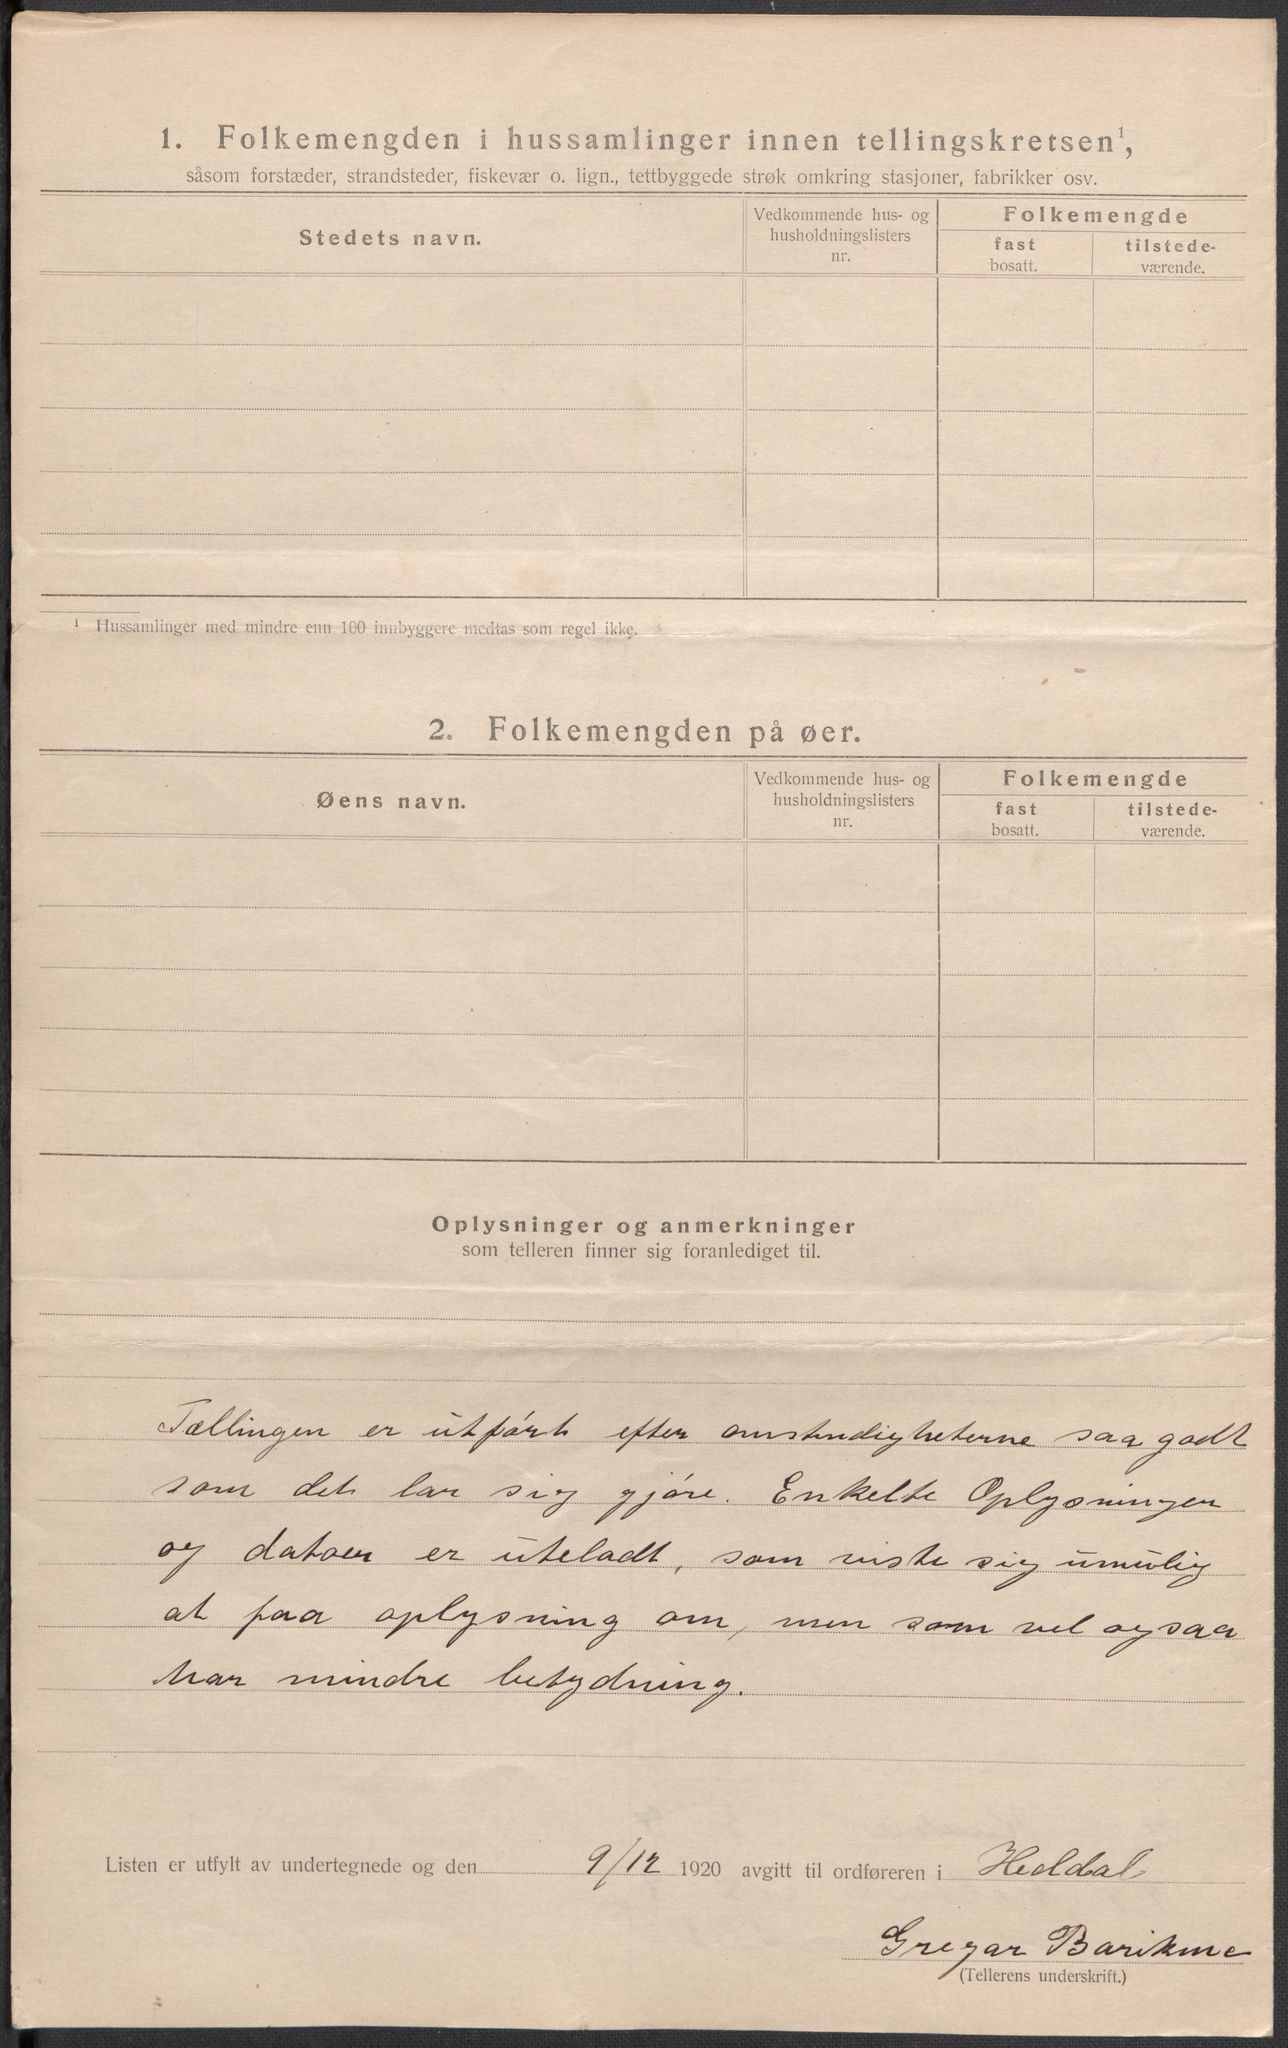 1. Folkemengden i hussamlinger innen tellingskretsen¹,
såsom forstæder, strandsteder, fiskevær o. lign., tettbyggede strøk omkring stasjoner, fabrikker osv.
Stedets navn.
Vedkommende hus- og
husholdningslisters
nr.
Folkemengde
fast
bosatt.
tilstede-
værende.
¹ Hussamlinger med mindre enn 100 innbyggere medtas som regel ikke.
2. Folkemengden på øer.
Øens navn.
Vedkommende hus- og
husholdningslisters
nr.
Folkemengde
fast
bosatt.
tilstede-
værende.
Oplysninger og anmerkninger
som telleren finner sig foranlediget til.
Tællingen er utført efter omstendigheterne saa godt
som det lar sig gjøre. Enkelte Oplysninger
og datoer er uteladt, som viste sig umulig
at faa oplysning om, men som vel ogsaa
har mindre betydning.
Listen er utfylt av undertegnede og den 9/12 1920 avgitt til ordføreren i Heddal
Gregar
(Tellerens underskrift.)